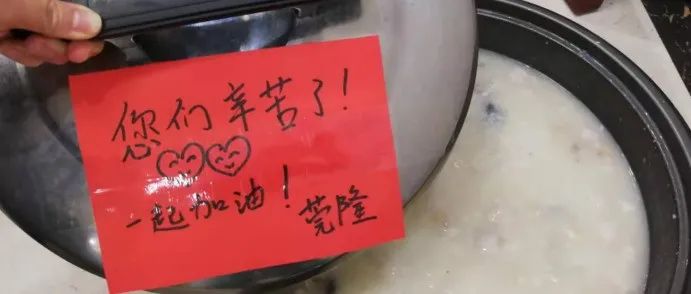 您们辛苦了！
一起加油！莞隆